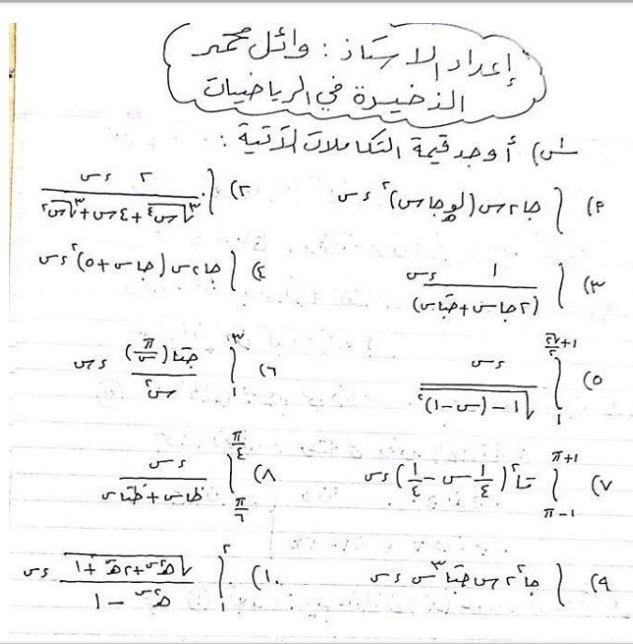 إعداد الاستاذ : وائل محمد
الذخيرة في الرياضيات
س) أوجد قيمة التكاملات الآتية :
١) ∫ جا٢س (لو‌ه جاس)^٢ ءس
٢) ∫ ٢ ءس / (٣√س^٤ + ٤س + ٣√س^٢)
٣) ∫ ١ / (٢جاس + جتاس) ءس
٤) ∫ جا٢س (جاس + ٥)^٢ ءس
٥) ∫_١^{١+√٢/٢} ءس / √(١ – (س–١)^٢)
٦) ∫_١^٣ جتا(π/س) / س^٢ ءس
٧) ∫_{π–١}^{π+١} تا^٢ (١/٤ س – ١/٤) ءس
٨) ∫_{π/٦}^{π/٤} ءس / (ظاس + ظتاس)
٩) ∫ جا^٢ ٢س جتا^٣ س ءس
١٠) ∫_١^٢ √(ه^٢س + ٢ه^س + ١) / (ه^٢س – ١) ءس